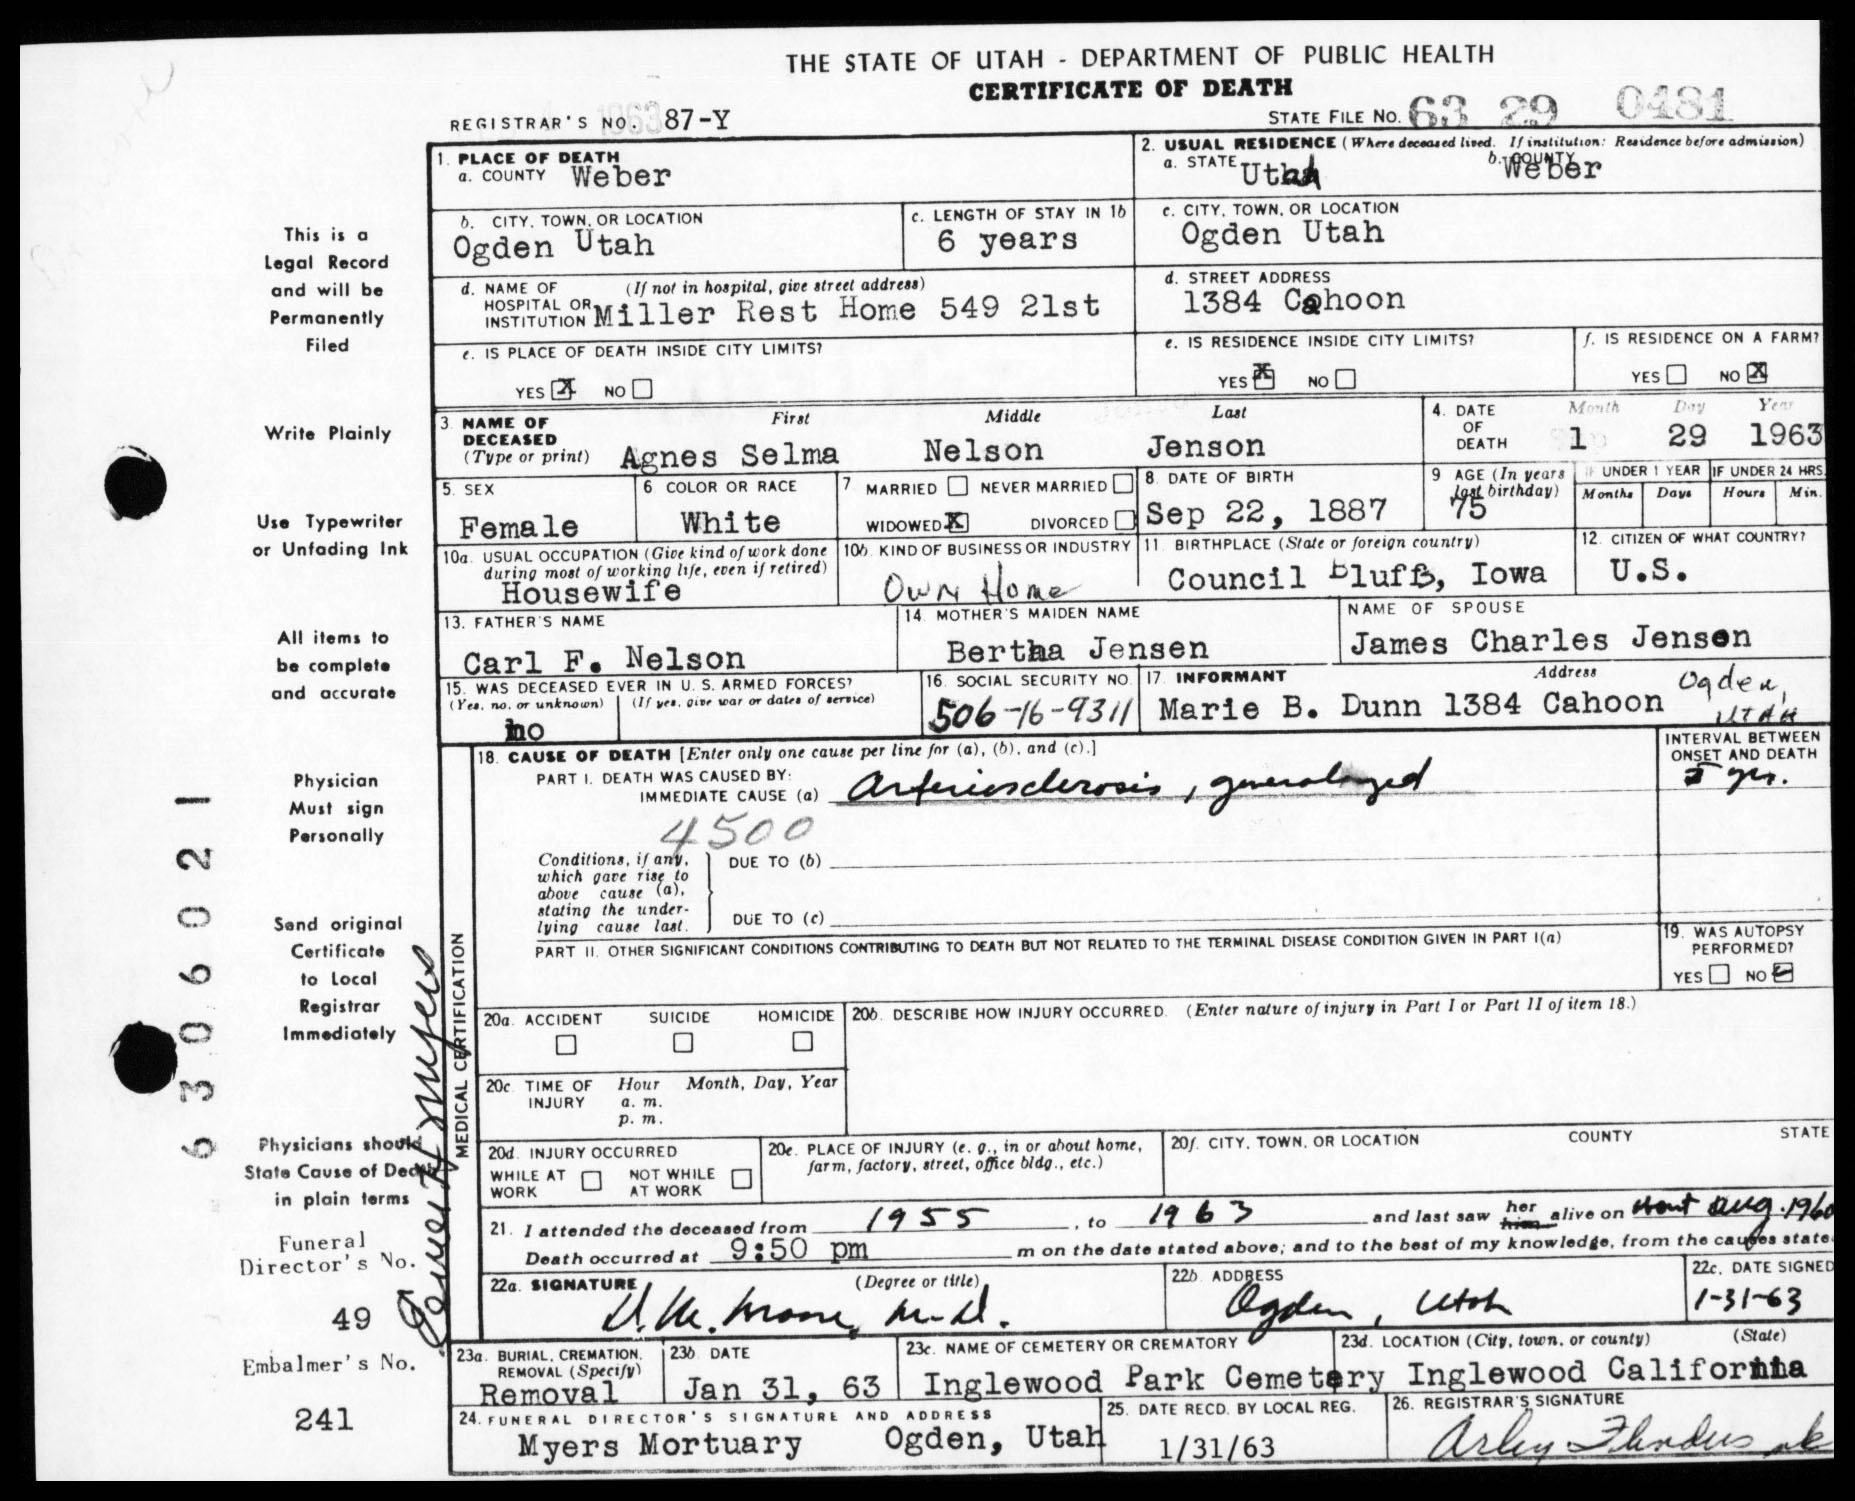 THE STATE OF UTAH - DEPARTMENT OF PUBLIC HEALTH
CERTIFICATE OF DEATH
REGISTRAR'S NO. 1963 87-Y
STATE FILE NO. 63 29 0481
1. PLACE OF DEATH
a. COUNTY Weber
2. USUAL RESIDENCE (Where deceased lived. If institution: Residence before admission)
a. STATE Utah b. COUNTY Weber
b. CITY, TOWN, OR LOCATION
Ogden Utah
c. LENGTH OF STAY IN 1b
6 years
c. CITY, TOWN, OR LOCATION
Ogden Utah
d. NAME OF HOSPITAL OR INSTITUTION (If not in hospital, give street address)
Miller Rest Home 549 21st
d. STREET ADDRESS
1384 Cahoon
e. IS PLACE OF DEATH INSIDE CITY LIMITS?
YES X NO
e. IS RESIDENCE INSIDE CITY LIMITS?
YES X NO
f. IS RESIDENCE ON A FARM?
YES NO X
3. NAME OF DECEASED (Type or print)
First Middle Last
Agnes Selma Nelson Jenson
4. DATE OF DEATH
Month Day Year
1 29 1963
5. SEX
Female
6 COLOR OR RACE
White
7 MARRIED NEVER MARRIED
WIDOWED X DIVORCED
8. DATE OF BIRTH
Sep 22, 1887
9 AGE (In years last birthday)
75
IF UNDER 1 YEAR
Months Days
IF UNDER 24 HRS.
Hours Min.
10a. USUAL OCCUPATION (Give kind of work done during most of working life, even if retired)
Housewife
10b. KIND OF BUSINESS OR INDUSTRY
Own Home
11. BIRTHPLACE (State or foreign country)
Council Bluffs, Iowa
12. CITIZEN OF WHAT COUNTRY?
U.S.
13. FATHER'S NAME
Carl F. Nelson
14. MOTHER'S MAIDEN NAME
Bertha Jensen
NAME OF SPOUSE
James Charles Jenson
15. WAS DECEASED EVER IN U. S. ARMED FORCES?
(Yes, no, or unknown) (If yes, give war or dates of service)
no
16. SOCIAL SECURITY NO.
506-16-9311
17. INFORMANT Address
Marie B. Dunn 1384 Cahoon Ogden, Utah
18. CAUSE OF DEATH [Enter only one cause per line for (a), (b), and (c).]
PART I. DEATH WAS CAUSED BY:
IMMEDIATE CAUSE (a) Arteriosclerosis, generalized
INTERVAL BETWEEN ONSET AND DEATH
yrs.
4500
Conditions, if any, which gave rise to above cause (a), stating the underlying cause last.
DUE TO (b)
DUE TO (c)
PART II. OTHER SIGNIFICANT CONDITIONS CONTRIBUTING TO DEATH BUT NOT RELATED TO THE TERMINAL DISEASE CONDITION GIVEN IN PART I(a)
19. WAS AUTOPSY PERFORMED?
YES NO
20a. ACCIDENT SUICIDE HOMICIDE
20b. DESCRIBE HOW INJURY OCCURRED. (Enter nature of injury in Part I or Part II of item 18.)
20c. TIME OF INJURY Hour Month, Day, Year
a. m.
p. m.
20d. INJURY OCCURRED
WHILE AT WORK NOT WHILE AT WORK
20e. PLACE OF INJURY (e. g., in or about home, farm, factory, street, office bldg., etc.)
20f. CITY, TOWN, OR LOCATION COUNTY STATE
21. I attended the deceased from 1955, to 1963 and last saw her him alive on Aug. 1960
Death occurred at 9:50 pm m on the date stated above; and to the best of my knowledge, from the causes state
22a. SIGNATURE (Degree or title)
M.D.
22b. ADDRESS
Ogden, Utah
22c. DATE SIGNED
1-31-63
23a. BURIAL, CREMATION, REMOVAL (Specify)
Removal
23b. DATE
Jan 31, 63
23c. NAME OF CEMETERY OR CREMATORY
Inglewood Park Cemetery
23d. LOCATION (City, town, or county) (State)
Inglewood California
24. FUNERAL DIRECTOR'S SIGNATURE AND ADDRESS
Myers Mortuary Ogden, Utah
25. DATE RECD. BY LOCAL REG.
1/31/63
26. REGISTRAR'S SIGNATURE
MEDICAL CERTIFICATION
This is a
Legal Record
and will be
Permanently
Filed
Write Plainly
Use Typewriter
or Unfading Ink
All items to
be complete
and accurate
Physician
Must sign
Personally
Send original
Certificate
to Local
Registrar
Immediately
Physicians should
State Cause of Death
in plain terms
Funeral
Director's No.
49
Embalmer's No.
241
6306021